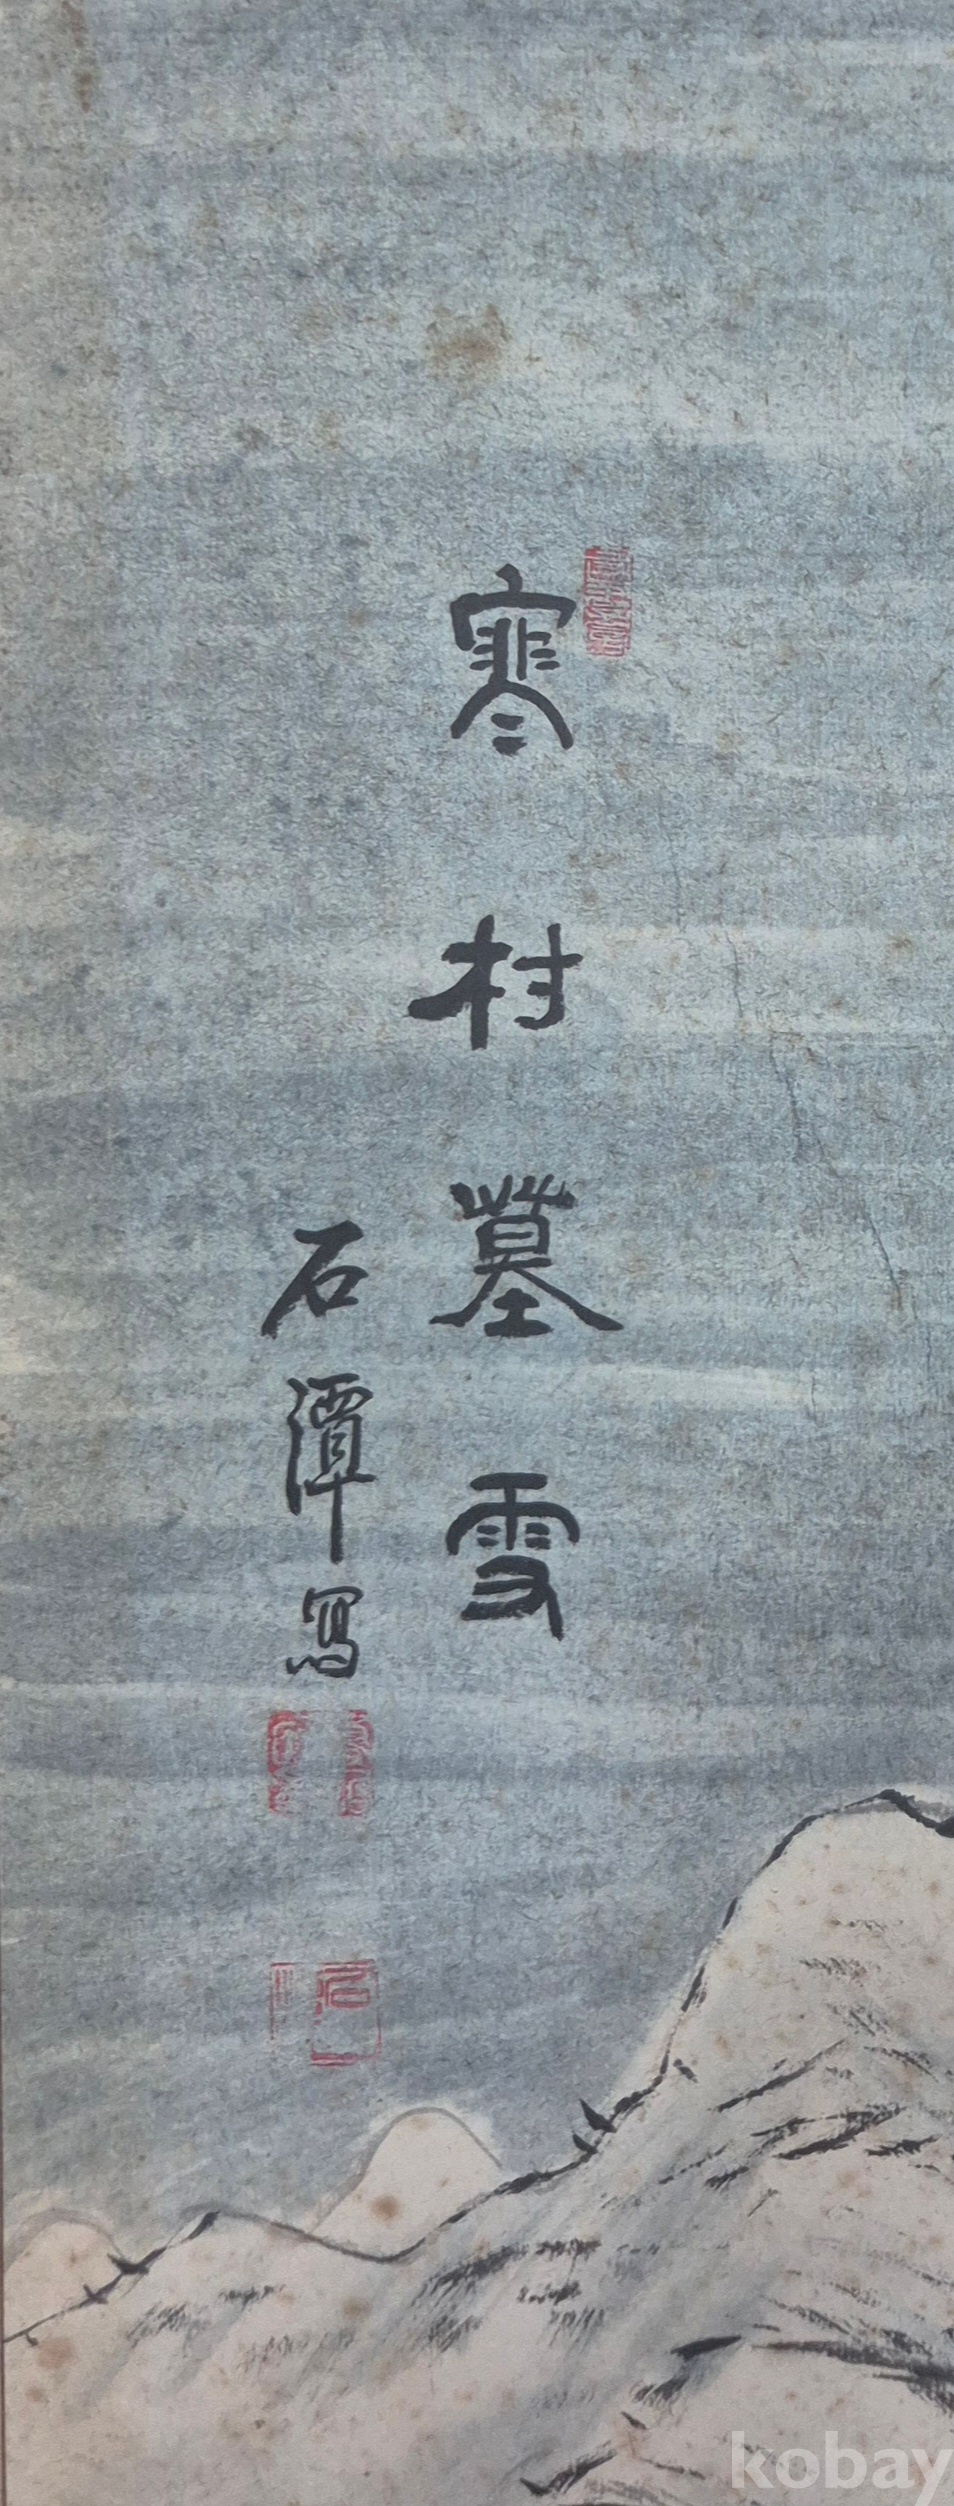 寒村墓雪
石潭寫
kobay